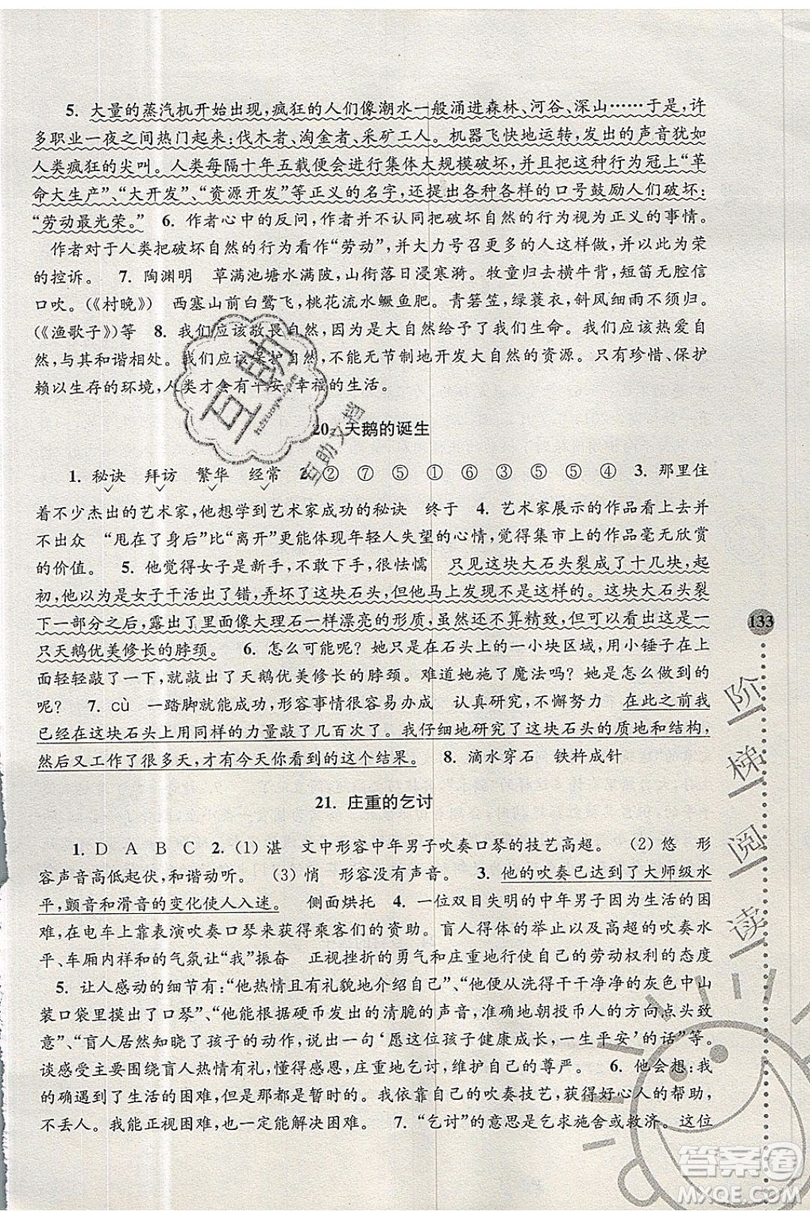 5. 大量的蒸汽机开始出现,疯狂的人们像潮水一般涌进森林、河谷、深山……于是,许
多职业一夜之间热门起来:伐木者、淘金者、采矿工人。机器飞快地运转,发出的声音犹如
人类疯狂的尖叫。人类每隔十年五载便开始进行集体大规模破坏,并把这种行为冠上“革
命大生产”、“大开发”、“资源开发”等正义的名字,还提出各种各样的口号鼓励人们破坏:
“劳动最光荣。” 6. 作者心中的反问,作者并不认同把破坏自然的行为视为正义的事情。
作者对于人类把破坏自然的行为看作“劳动”,并大力号召大家这样做,并以此为荣
的控诉。 7. 陶渊明 草满池塘水满陂,山衔落日浸寒漪。牧童归去横牛背,短笛无腔信
口吹。(《村晚》) 西塞山前白鹭飞,桃花流水鳜鱼肥。青箬笠,绿蓑衣,斜风细雨不须归。
(《渔歌子》)等 8. 我们应该敬畏自然,因为是大自然给予了我们生命。我们应该热爱自
然,与其和谐相处。我们应该保护自然,不能无节制地开发大自然的资源。只有珍惜、保护
赖以生存的环境,人类才会有平安、幸福的生活。
20. 天鹅的诞生
1. 秘诀 拜访 繁华 经常 2. ② ⑦ ⑤ ① ⑥ ③ ⑤ ⑤ ④ 3. 那里住
着不少杰出的艺术家,他想学到艺术家成功的秘诀 终于 4. 艺术家展示的作品看上去并
不出众 “甩在了身后”比“离开”更能体现年轻人失望的心情,觉得集市上的作品毫无欣赏
的价值。 5. 他觉得女子是新手,不敢动手,很怯懦 只见这块大石头裂成了十几块,给人
的感觉是,因为是女子干活出了错,弄坏了这块石头,但是不是这样的。这块大石头裂
下一部分之后,露出了里面像大理石一样漂亮的形质,虽然还不算精致,但可以看出是一
只天鹅优美修长的脖颈。 6. 怎么可能呢?她只是在石头上的一小块区域,用小锤子在上
面轻轻敲了一下,就出现了天鹅优美修长的脖颈。难道她施了魔法吗?她是怎么做到的
呢? 7. cù 一踏脚就能成功,形容事情很容易办成 认真研究,不懈努力 在此之前我
已经在这块石头上用同样的力量敲了几百次了。我仔细地研究了这块石头的质地和结构,
然后又工作了很多天,才有今天你看到的这个结果。 8. 滴水穿石 铁杵成针
21. 庄重的乞讨
1. D A B C 2. (1) 湛 文中形容中年男子吹奏口琴的技艺高超。 (2) 悠 形
容声音高低起伏,和谐动听。 (3) 悄 形容没有声音。 3. 他的吹奏已达到了大师级水
平,颤音和滑音的变化使人入迷。 侧面烘托 4. 一位双目失明的中年男子因为生活的困
难,在电车上靠表演吹奏口琴来获得乘客们的资助。盲人得体的举止以及高超的吹奏水
平、车厢和祥的气氛让“我”振奋 正视挫折与困难,重视自己的劳动权利的态度
5. 让人感动的细节有:“他热情且有礼貌地介绍自己”;“他便从洗得干干净净的灰色中山
装口袋里摸出了口琴”;“他根据硬币发出的清脆的声音,准确地朝投币人的方向深深鞠了
一躬”;“盲人居然影响了孩子的动作,激动地说‘愿这位孩子健康成长,一生平安’的话”等。
谈感受主要围绕盲人热情有礼,懂得感恩,庄重地乞讨,维护自己的尊严。 6. 他会想:我
的确遇到了生活的困难,但这些都是暂时的。我用自己的吹奏技艺,获得好心人的帮助,
不丢人。我能正视困难,也一定能解决困难。 7. “乞讨”的意思是乞求施舍或救济。这位
133
阶梯阅读
互助
互助文档
答案圈
MXQE.COM